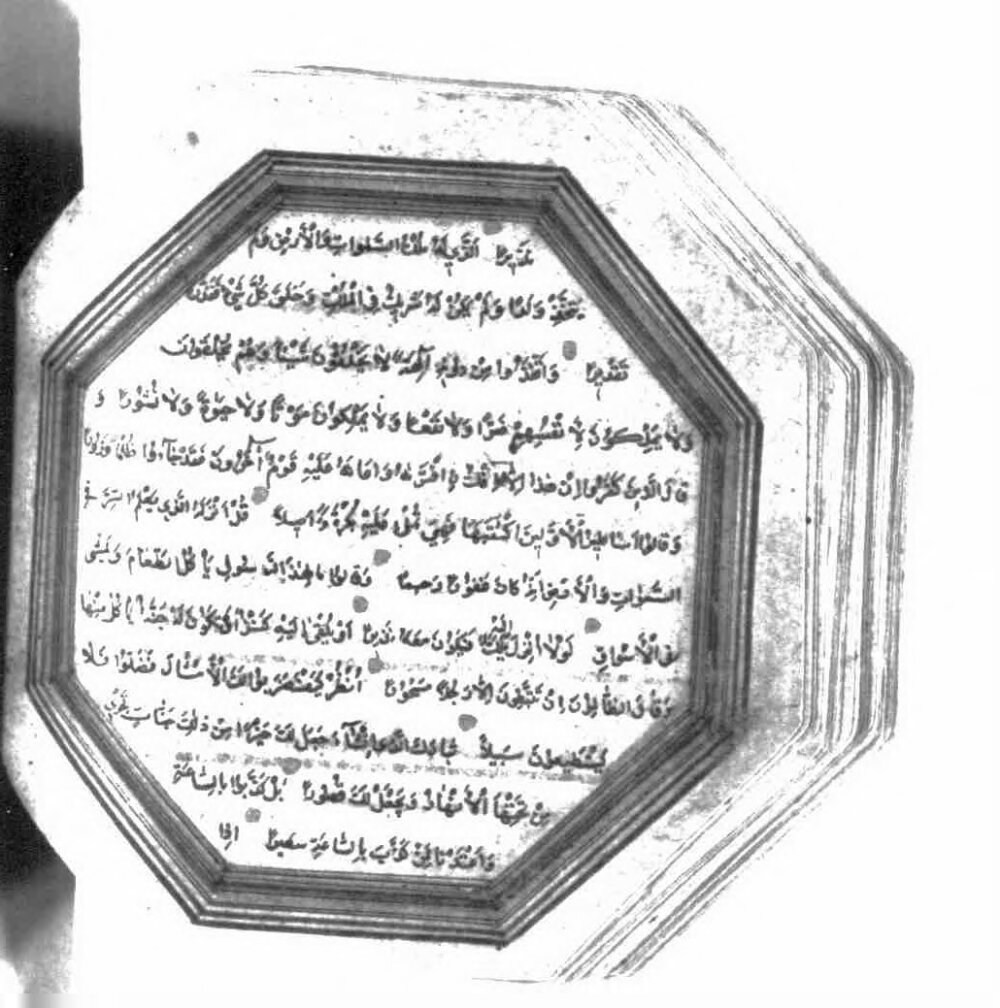 نَذِيرًا الَّذِي لَهُ مُلْكُ السَّمٰوَاتِ وَالْأَرْضِ وَلَمْ
يَتَّخِذْ وَلَدًا وَلَمْ يَكُنْ لَهُ شَرِيكٌ فِي الْمُلْكِ وَخَلَقَ كُلَّ شَيْءٍ فَقَدَّرَهُ
تَقْدِيرًا وَاتَّخَذُوا مِنْ دُونِهِ آلِهَةً لَا يَخْلُقُونَ شَيْئًا وَهُمْ يُخْلَقُونَ
وَلَا يَمْلِكُونَ لِأَنْفُسِهِمْ ضَرًّا وَلَا نَفْعًا وَلَا يَمْلِكُونَ مَوْتًا وَلَا حَيٰوةً وَلَا نُشُورًا وَ
قَالَ الَّذِينَ كَفَرُوا إِنْ هٰذَا إِلَّا إِفْكٌ افْتَرٰهُ وَأَعَانَهُ عَلَيْهِ قَوْمٌ آخَرُونَ فَقَدْ جَاءُوا ظُلْمًا وَزُورًا
وَقَالُوا أَسَاطِيرُ الْأَوَّلِينَ اكْتَتَبَهَا فَهِيَ تُمْلٰى عَلَيْهِ بُكْرَةً وَأَصِيلًا قُلْ أَنْزَلَهُ الَّذِي يَعْلَمُ السِّرَّ فِي
السَّمٰوَاتِ وَالْأَرْضِ إِنَّهُ كَانَ غَفُورًا رَحِيمًا وَقَالُوا مَالِ هٰذَا الرَّسُولِ يَأْكُلُ الطَّعَامَ وَيَمْشِي
فِي الْأَسْوَاقِ لَوْلَا أُنْزِلَ إِلَيْهِ مَلَكٌ فَيَكُونَ مَعَهُ نَذِيرًا أَوْ يُلْقٰى إِلَيْهِ كَنْزٌ أَوْ تَكُونُ لَهُ جَنَّةٌ يَأْكُلُ مِنْهَا
وَقَالَ الظَّالِمُونَ إِنْ تَتَّبِعُونَ إِلَّا رَجُلًا مَسْحُورًا أُنْظُرْ كَيْفَ ضَرَبُوا لَكَ الْأَمْثَالَ فَضَلُّوا فَلَا
يَسْتَطِيعُونَ سَبِيلًا تَبَارَكَ الَّذِي إِنْ شَاءَ جَعَلَ لَكَ خَيْرًا مِنْ ذٰلِكَ جَنَّاتٍ تَجْرِي
مِنْ تَحْتِهَا الْأَنْهَارُ وَيَجْعَلْ لَكَ قُصُورًا بَلْ كَذَّبُوا بِالسَّاعَةِ
وَأَعْتَدْنَا لِمَنْ كَذَّبَ بِالسَّاعَةِ سَعِيرًا إِذَا